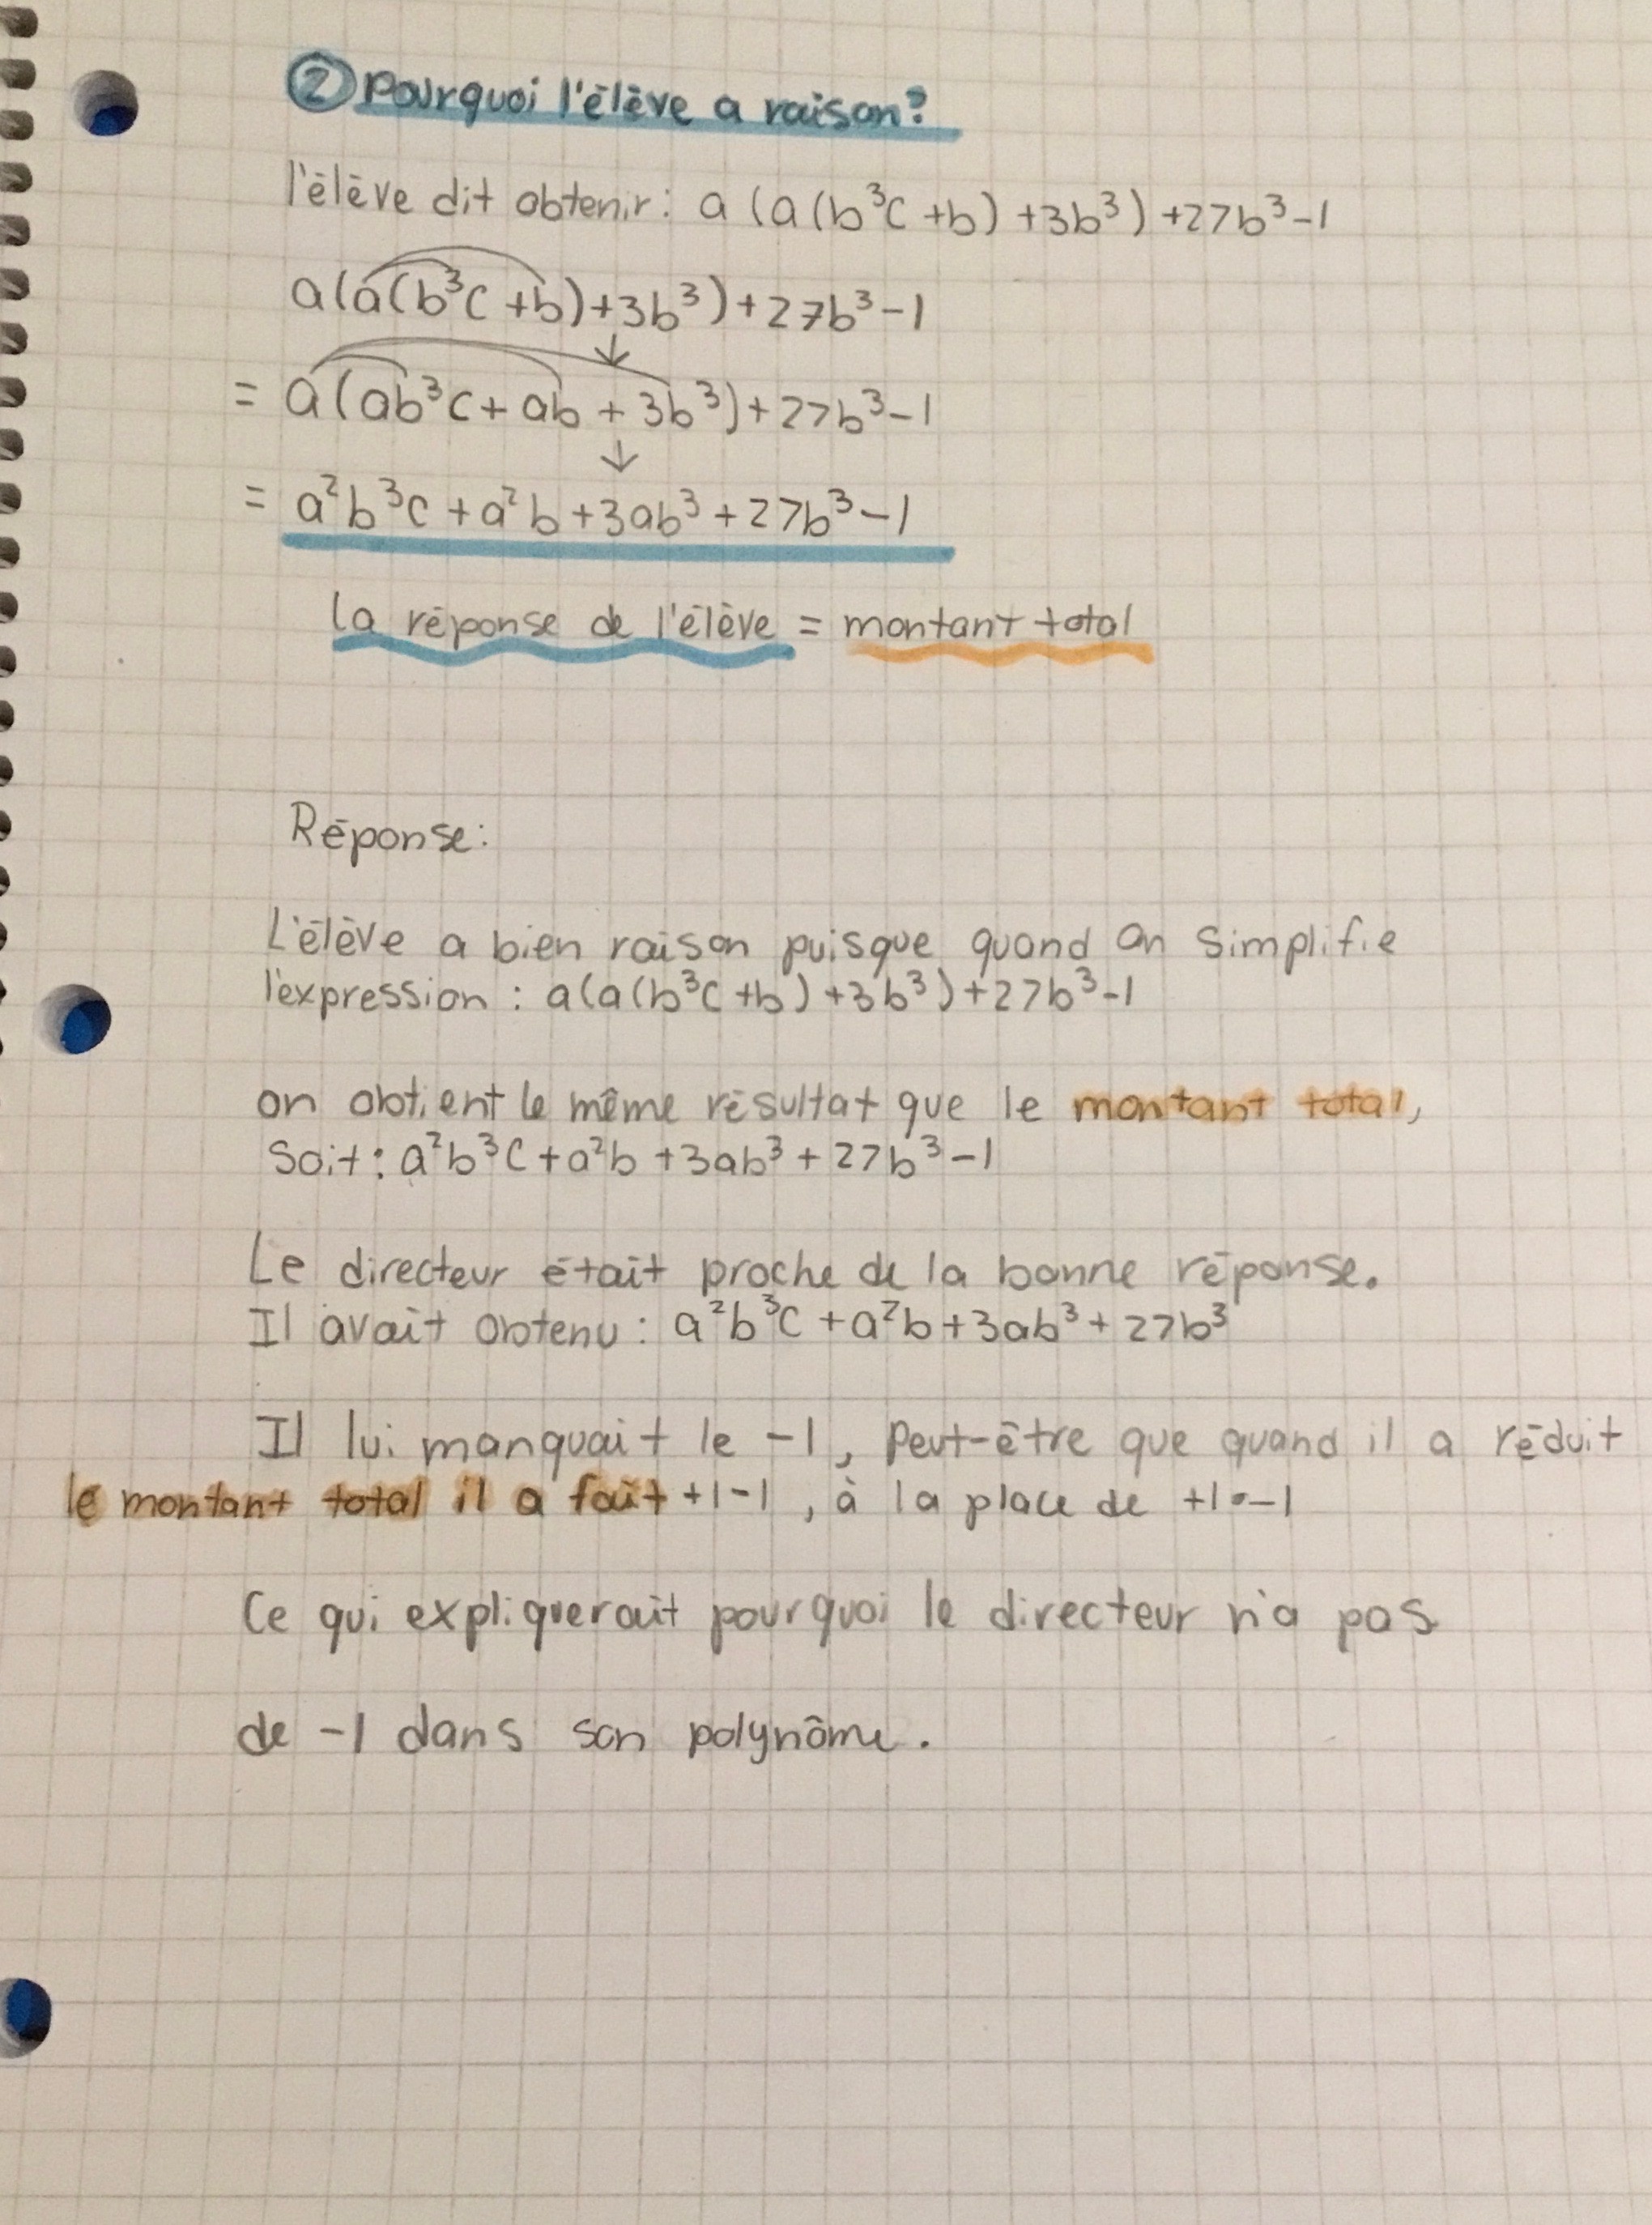 ② Pourquoi l'élève a raison?
l'élève dit obtenir: a(a(b³c+b)+3b³)+27b³-1
a(a(b³c+b)+3b³)+27b³-1
↓
= a(ab³c+ab+3b³)+27b³-1
↓
= a²b³c+a²b+3ab³+27b³-1
la réponse de l'élève = montant total
Réponse:
L'élève a bien raison puisque quand on simplifie
l'expression : a(a(b³c+b)+3b³)+27b³-1
on obtient le même résultat que le montant total,
Soit: a²b³c+a²b+3ab³+27b³-1
Le directeur était proche de la bonne réponse.
Il avait obtenu: a²b³c+a²b+3ab³+27b³
Il lui manquait le -1, Peut-être que quand il a réduit
le montant total il a fait +1-1, à la place de +1•-1
Ce qui expliquerait pourquoi le directeur n'a pas
de -1 dans son polynôme.